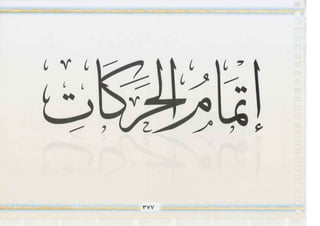 إِتْمَامُ الحَرَكَاتِ
٣٧٧